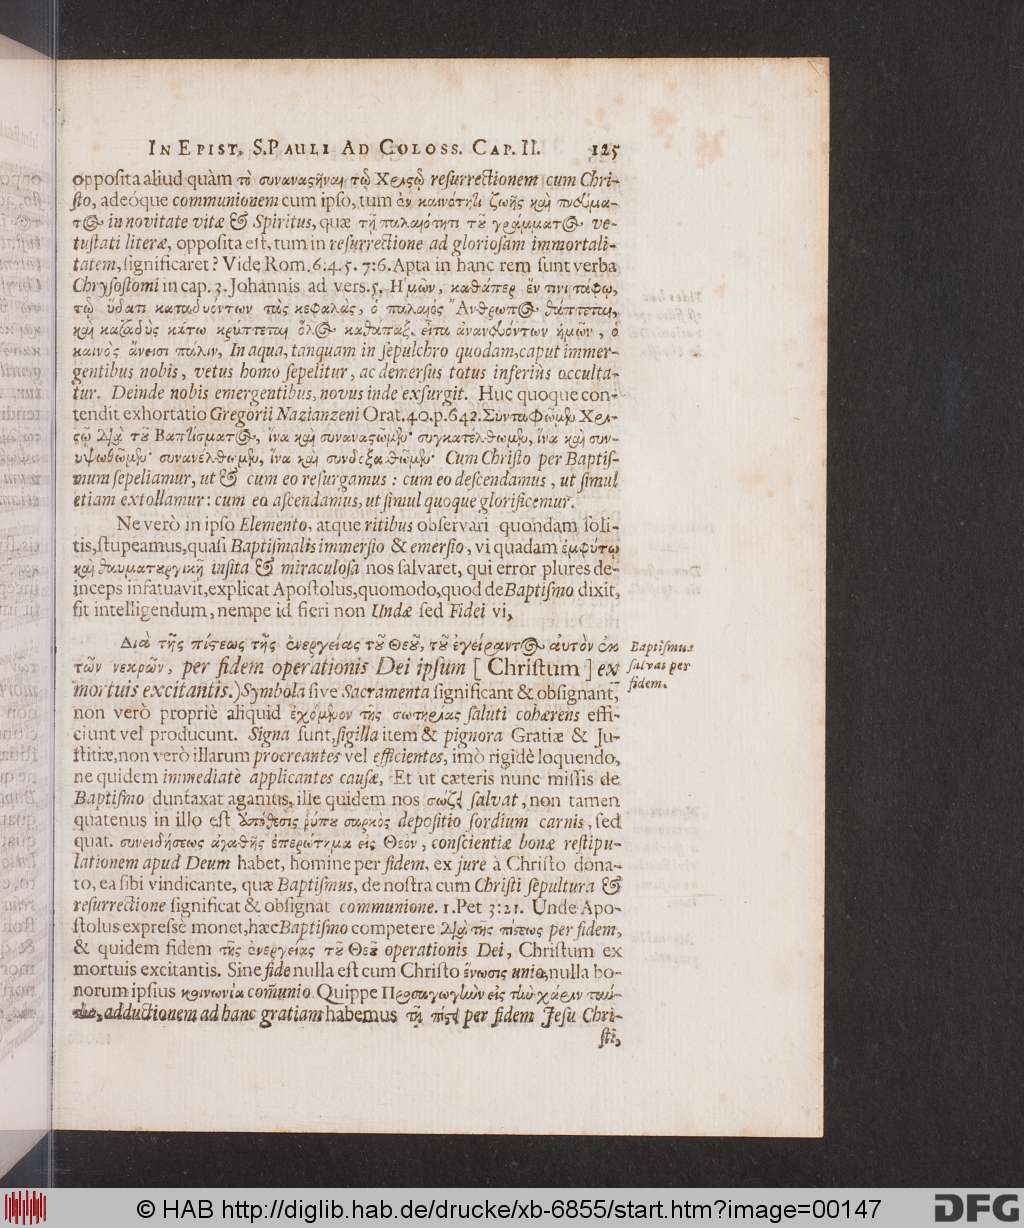 IN EPIST. S. PAULI AD COLOSS. CAP. II. 125
opposita aliud quàm τὸ συναναςῆναι τῷ Χριςῷ resurrectionem cum Chri-
sto, adeóque communionem cum ipso, tum ἐν καινότητι ζωῆς καὶ πνεύμα-
τ@ in novitate vitæ & Spiritus, quæ τῇ παλαιότητι τοῦ γράμματ@ ve-
tustati literæ, opposita est, tum in resurrectione ad gloriosam immortali-
tatem, significaret? Vide Rom. 6:4.5. 7:6. Apta in hanc rem sunt verba
Chrysostomi in cap. 3. Johannis ad vers. 5. Ἡμῶν, καθάπερ ἔν τινι τάφῳ,
τῷ ὕδατι καταδυόντων τὰς κεφαλὰς, ὁ παλαιὸς Ἄνθρωπ@ θάπτεται,
καὶ καταδὺς κάτω κρύπτεται ὅλ@ καθάπαξ. εἶτα ἀνανευόντων ἡμῶν, ὁ
καινὸς ἄνεισι πάλιν, In aqua, tanquam in sepulchro quodam, caput immer-
gentibus nobis, vetus homo sepelitur, ac demersus totus inferiùs occulta-
tur. Deinde nobis emergentibus, novus inde exsurgit. Huc quoque con-
tendit exhortatio Gregorii Nazianzeni Orat. 40. p. 642. Συνταφῶμεν Χρι-
ςῷ διὰ τοῦ Βαπτίσματ@, ἵνα καὶ συναναςῶμεν· συγκατέλθωμεν, ἵνα καὶ συν-
υψωθῶμεν· συνανέλθωμεν, ἵνα καὶ συνδοξαθῶμεν· Cum Christo per Baptis-
mum sepeliamur, ut & cum eo resurgamus: cum eo descendamus, ut simul
etiam extollamur: cum eo ascendamus, ut simul quoque glorificemur.
Ne verò in ipso Elemento, atque ritibus observari quondam soli-
tis, stupeamus, quasi Baptismalis immersio & emersio, vi quadam ἐμφύτῳ
καὶ θαυματουργικῇ insita & miraculosa nos salvaret, qui error plures de-
inceps infatuavit, explicat Apostolus, quomodo, quod de Baptismo dixit,
sit intelligendum, nempe id fieri non Undæ sed Fidei vi,
Διὰ τῆς πίςεως τῆς ἐνεργείας τοῦ Θεοῦ, τοῦ ἐγείραντ@ αὐτὸν ἐκ
τῶν νεκρῶν, per fidem operationis Dei ipsum [Christum] ex
mortuis excitantis.) Symbola sive Sacramenta significant & obsignant,
non verò propriè aliquid ἐχόμενον τῆς σωτηρίας saluti cohærens effi-
ciunt vel producunt. Signa sunt, sigilla item & pignora Gratiæ & Ju-
stitiæ, non verò illarum procreantes vel efficientes, imò rigidè loquendo,
ne quidem immediatè applicantes causæ, Et ut cæteris nunc missis de
Baptismo duntaxat agamus, ille quidem nos σώζει salvat, non tamen
quatenus in illo est ἀπόθεσις ῥύπου σαρκὸς depositio sordium carnis, sed
quat. συνειδήσεως ἀγαθῆς ἐπερώτημα εἰς Θεὸν, conscientiæ bonæ restipu-
lationem apud Deum habet, homine per fidem, ex jure à Christo dona-
to, ea sibi vindicante, quæ Baptismus, de nostra cum Christi sepultura &
resurrectione significat & obsignat communione. 1. Pet 3:21. Unde Apo-
stolus expressè monet, hæc Baptismo competere διὰ τῆς πίςεως per fidem,
& quidem fidem τῆς ἐνεργείας τοῦ Θεοῦ operationis Dei, Christum ex
mortuis excitantis. Sine fide nulla est cum Christo ἕνωσις unio, nulla bo-
norum ipsius κοινωνία com̄unio Quippe Προσαγωγὴν εἰς τὴν χάριν ταύ-
την, adductionem ad hanc gratiam habemus τῇ πίςει per fidem Jesu Chri-
sti,
Baptismus
salvat per
fidem.
© HAB http://diglib.hab.de/drucke/xb-6855/start.htm?image=00147
DFG